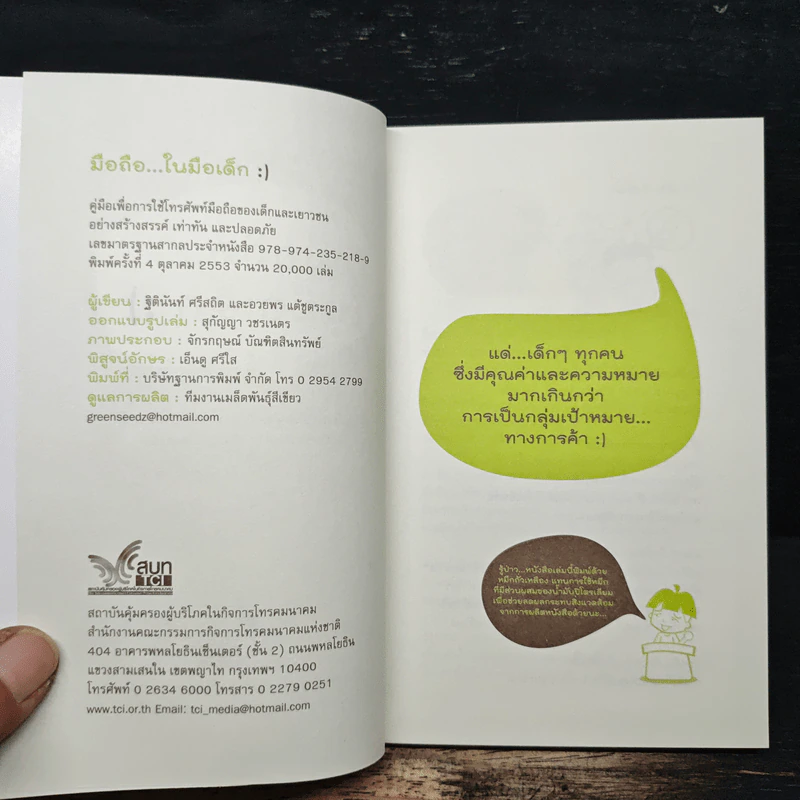 มือถือ...ในมือเด็ก :)
คู่มือเพื่อการใช้โทรศัพท์มือถือของเด็กและเยาวชน
อย่างสร้างสรรค์ เท่าทัน และปลอดภัย
เลขมาตรฐานสากลประจำหนังสือ 978-974-235-218-9
พิมพ์ครั้งที่ 4 ตุลาคม 2553 จำนวน 20,000 เล่ม
ผู้เขียน : ฐิตินันท์ ศรีสถิต และอวยพร แต้ชูตระกูล
ออกแบบรูปเล่ม : สุกัญญา วชรเนตร
ภาพประกอบ : จักรกฤษณ์ บัณฑิตสินทรัพย์
พิสูจน์อักษร : เอ็นดู ศรีใส
พิมพ์ที่ : บริษัทฐานการพิมพ์ จำกัด โทร 0 2954 2799
ดูแลการผลิต : ทีมงานเมล็ดพันธุ์สีเขียว
greenseedz@hotmail.com
สบท
TCI
สถาบันคุ้มครองผู้บริโภคในกิจการโทรคมนาคม
สำนักงานคณะกรรมการกิจการโทรคมนาคมแห่งชาติ
404 อาคารพหลโยธินเซ็นเตอร์ (ชั้น 2) ถนนพหลโยธิน
แขวงสามเสนใน เขตพญาไท กรุงเทพฯ 10400
โทรศัพท์ 0 2634 6000 โทรสาร 0 2279 0251
www.tci.or.th Email: tci_media@hotmail.com
แด่...เด็กๆ ทุกคน
ซึ่งมีคุณค่าและความหมาย
มากเกินกว่า
การเป็นกลุ่มเป้าหมาย...
ทางการค้า :)
รู้ป่าว...หนังสือเล่มนี้พิมพ์ด้วย
หมึกถั่วเหลือง แทนการใช้หมึก
ที่มีส่วนผสมของน้ำมันปิโตรเลียม
เพื่อช่วยลดผลกระทบสิ่งแวดล้อม
จากการผลิตหนังสือด้วยนะ...